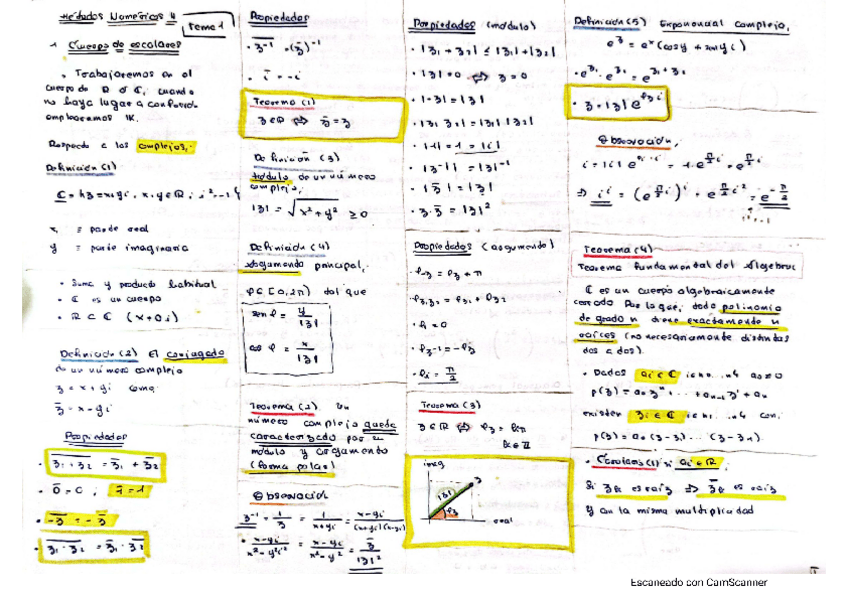 Métodos Numéricos II
Tema 1
1 Cuerpo de escalares
• Trabajaremos en el
cuerpo R o C, cuando
no haya lugar a confusión
emplearemos K.
Respecto a los complejos,
Definición (1)
C = {z = x+yi, x,y ∈ R; i² = -1}
x, = parte real
y = parte imaginaria
• Suma y producto habitual
• C es un cuerpo
• R ⊂ C (x+0i)
Definición (2) El conjugado
de un número complejo
z = x + yi como
z̄ = x - yi
Propiedades
• \overline{z₁ + z₂} = z̄₁ + z̄₂
• 0̄ = 0 ; 1̄ = 1
• \overline{-z} = -z̄
• \overline{z₁ · z₂} = z̄₁ · z̄₂
Propiedades
• \overline{z⁻¹} = (z̄)⁻¹
• ī = -i
Teorema (1)
z ∈ R ⇔ z̄ = z
Definición (3)
Módulo de un número
complejo,
|z| = √(x² + y²) ≥ 0
Definición (4)
Argumento principal,
φ ∈ [0, 2π) tal que
sen φ = y/|z|
cos φ = x/|z|
Teorema (2) Un
número complejo queda
caracterizado por su
módulo y argumento
(forma polar)
Observación
z⁻¹ = 1/z = 1/(x+yi) = (x-yi)/((x+yi)(x-yi))
= (x-yi)/(x²-y²i²) = (x-yi)/(x²+y²) = z̄/|z|²
Propiedades (módulo)
• |z₁ + z₂| ≤ |z₁| + |z₂|
• |z| = 0 ⇔ z = 0
• |-z| = |z|
• |z₁ z₂| = |z₁| |z₂|
• |-1| = 1 = |i|
• |z⁻¹| = |z|⁻¹
• |z̄| = |z|
• z · z̄ = |z|²
Propiedades (argumento)
• φ₋z = φz + π
• φz₁z₂ = φz₁ + φz₂
• φ₁ = 0
• φz⁻¹ = -φz
• φi = π/2
Teorema (3)
z ∈ R ⇔ φz = kπ
k ∈ Z
imag
|z|
z
φz
real
Definición (5) Exponencial compleja,
e^z = eˣ (cos y + sen y i)
• e^z · e^z₁ = e^(z₁ + z)
• z = |z| e^(φz i)
Observación,
i = |i| e^(φi · i) = 1 · e^(π/2 i) = e^(π/2 i)
⇒ i^i = (e^(π/2 i))^i = e^(π/2 i²) = e^(-π/2)
Teorema (4)
Teorema fundamental del Álgebra:
C es un cuerpo algebraicamente
cerrado. Por lo que, todo polinomio
de grado n tiene exactamente n
raíces (no necesariamente distintas
dos a dos).
• Dados aᵢ ∈ C a₀ ≠ 0
p(z) = a₀ zⁿ + ... + aₙ₋₁ z¹ + aₙ
existen zᵢ ∈ C con,
p(z) = a₀ (z - z₁) ... (z - zₙ)
• Corolario (1) Si aᵢ ∈ R
Si zₖ es raíz ⇒ z̄ₖ es raíz
Y con la misma multiplicidad
Escaneado con CamScanner